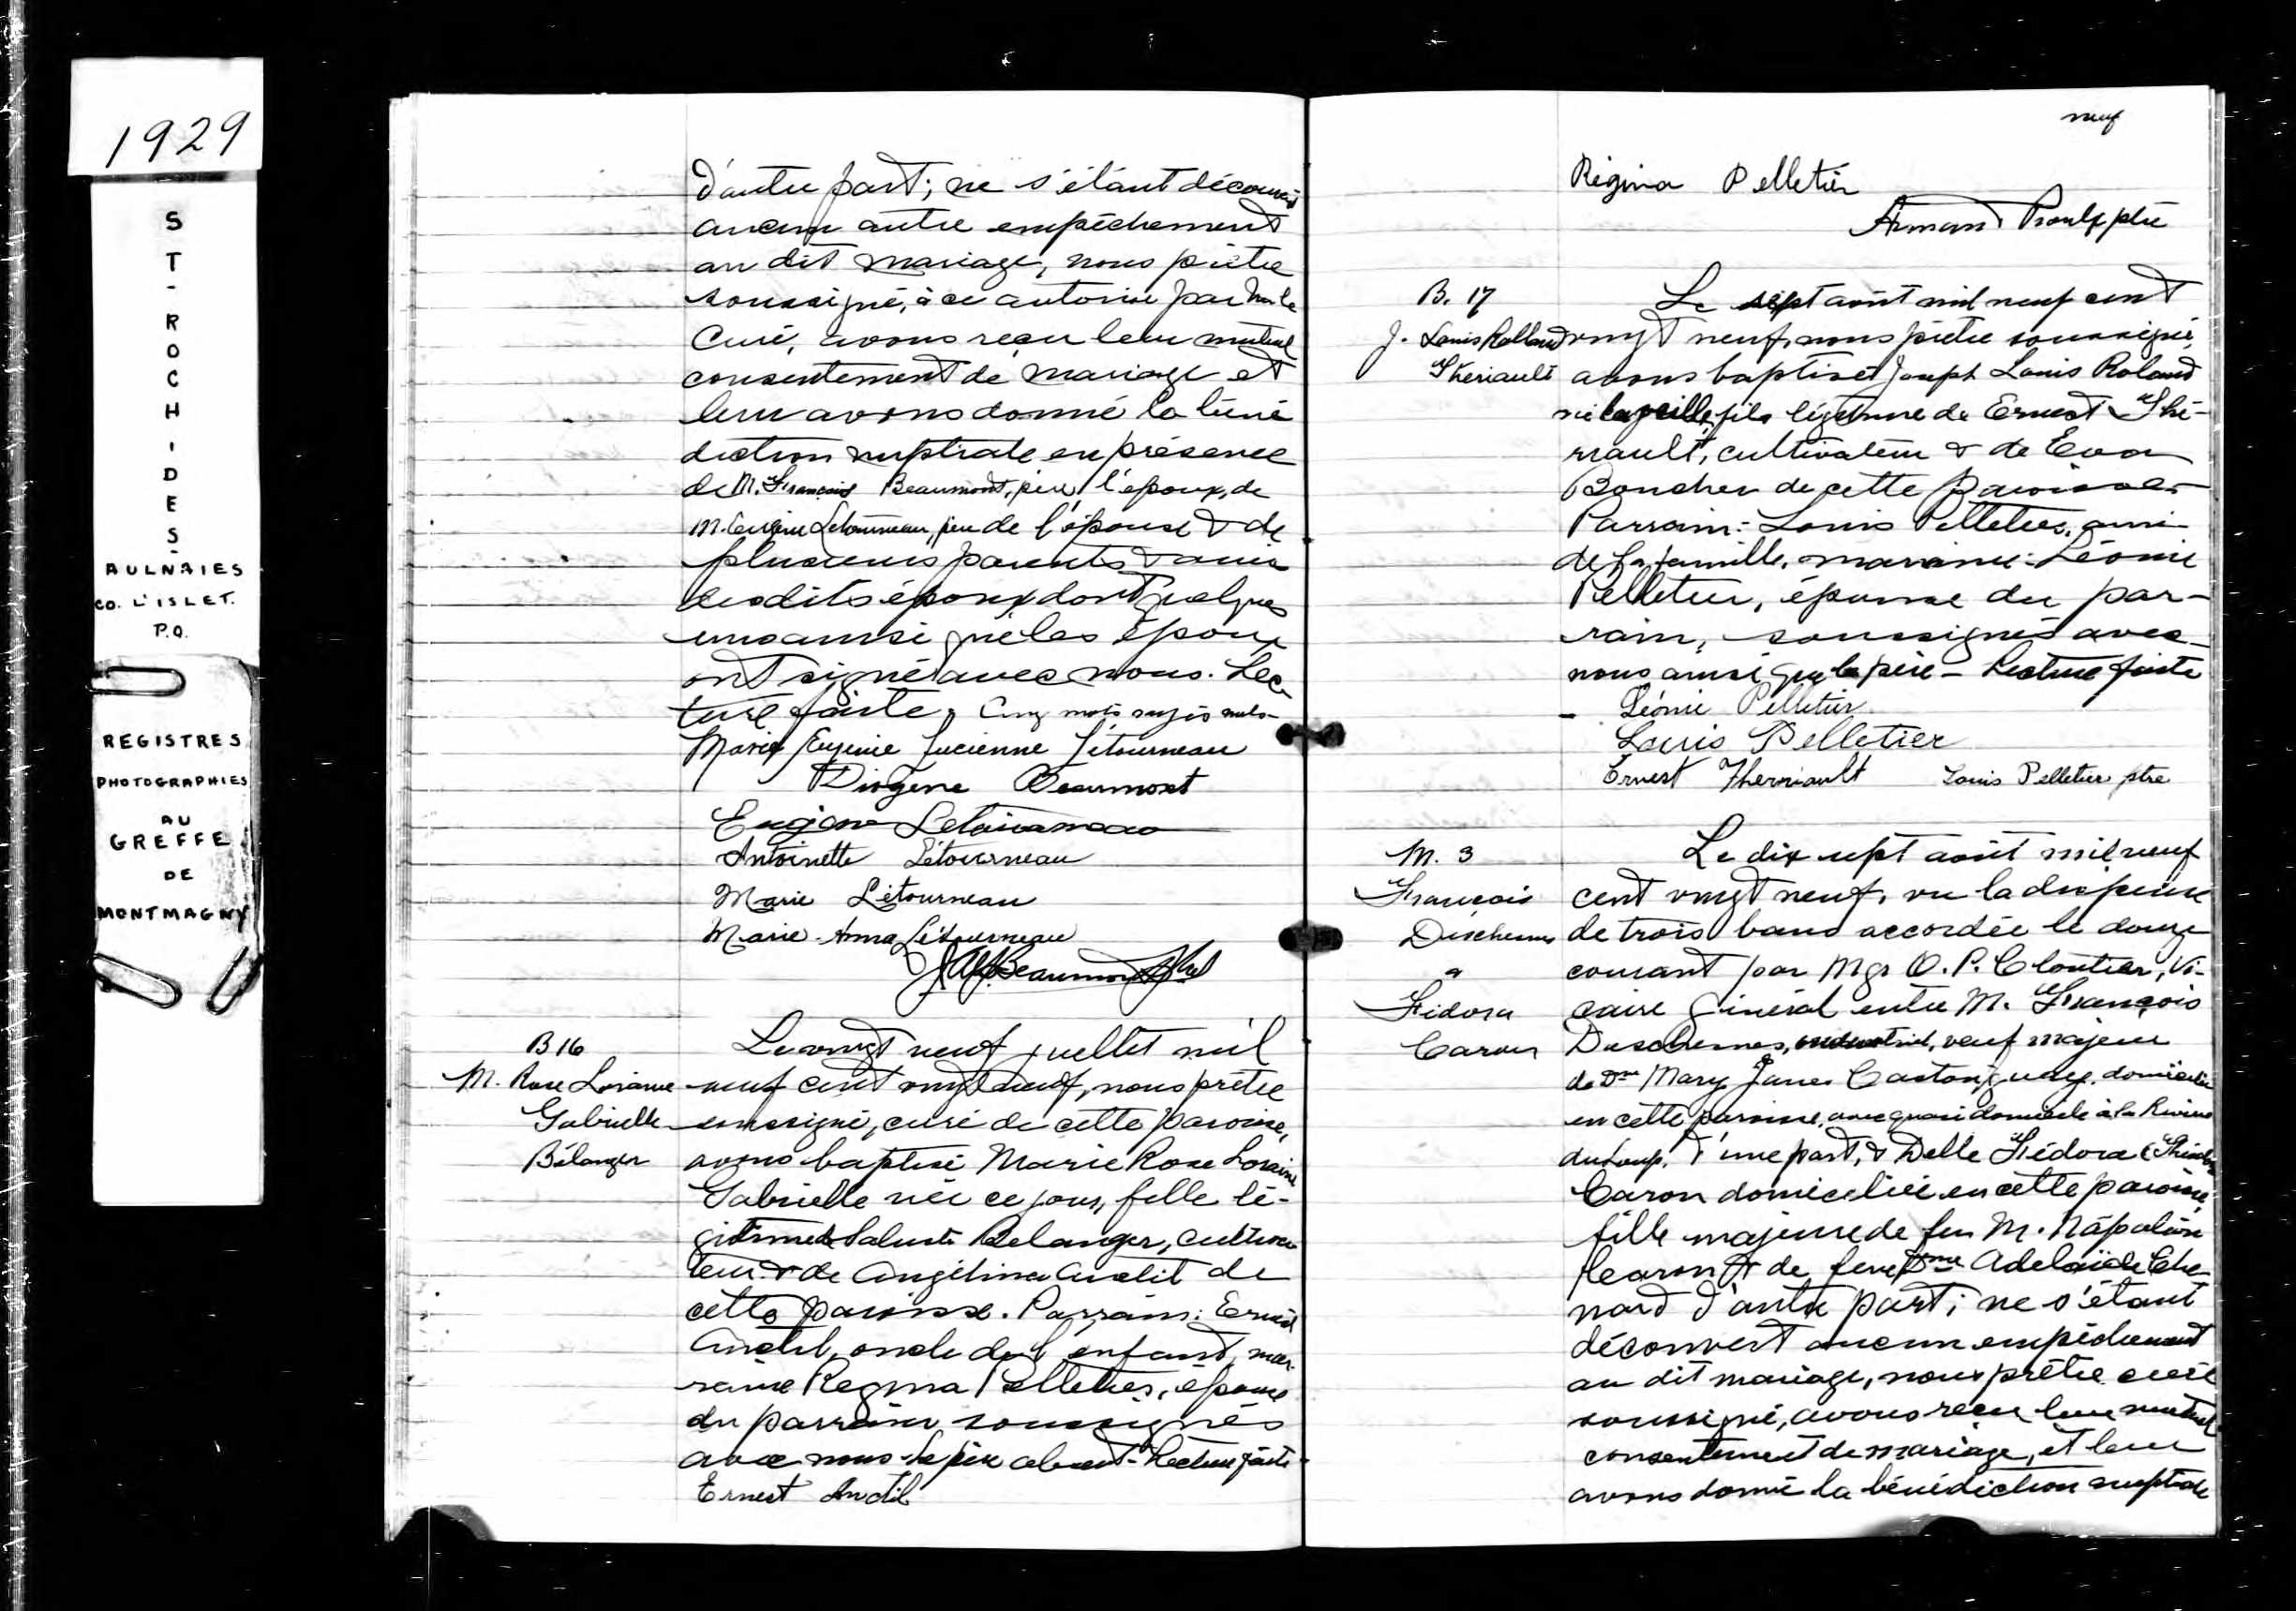 1929
ST-ROCH-DES-
AULNAIES
CO. L'ISLET.
P.Q.
REGISTRES
PHOTOGRAPHIES
AU
GREFFE
DE
MONTMAGNY
d'autre part; ne s'étant découvert
aucun autre empêchement
au dit mariage, nous prêtre
soussigné, à ce autorisé par M. le
Curé, avons reçu leur mutuel
consentement de mariage et
leur avons donné la béné
diction nuptiale en présence
de M. François Beaumont, père l'époux, de
M. Eugène Letourneau, père de l'épouse & de
plusieurs parents & amis
desdits époux dont quelques
uns ainsi que les époux
ont signé avec nous. Lec-
ture faite. Cinq mots rayés nuls-
Marie Eugénie Lucienne Létourneau
Diogène Beaumont
Eugène Letourneau
Antoinette Létourneau
Marie Létourneau
Marie-Anna Létourneau
Beaumont
B 16
M. Rose Loraine
Gabrielle
Bélanger
Le vingt neuf juillet mil
neuf cent vingt neuf, nous prêtre
soussigné, curé de cette paroisse,
avons baptisé Marie Rose Loraine
Gabrielle née ce jour, fille lé-
gitime de Saluste Belanger, cultiva
teur & de Angélina Anctil de
cette paroisse. Parrain: Ernest
Anctil, oncle de l'enfant, mar
raine Regina Pelletier, épouse
du parrain soussignés
avec nous - le père absent - Lecture faite -
Ernest Anctil
neuf
Régina Pelletier
Armand Proulx ptre
B. 17
J. Louis Rolland
Thériault
Le sept août mil neuf cent
vingt neuf, nous prêtre soussigné,
avons baptisé Joseph Louis Roland
né la veille, fils légitime de Ernest Thé-
riault, cultivateur & de Eva
Boucher de cette paroisse -
Parrain: Louis Pelletier, ami
de la famille, marraine: Léonie
Pelletier, épouse du par-
rain, soussignés avec
nous ainsi que le père - Lecture faite
- Léonie Pelletier
Louis Pelletier
Ernest Therriault Louis Pelletier ptre
M. 3
François
Deschenes
&
Fidora
Caron
Le dix sept août mil neuf
cent vingt neuf, vu la dispense
de trois bans accordée le douze
courant par Mgr O. P. Cloutier, Vi-
caire Général entre M. François
Deschenes, industriel, veuf majeur
de Dme Mary Janes Castonguay, domicilié
en cette paroisse, avec quasi domicile à la Rivière
du Loup, d'une part, & Delle Fédora
Caron domiciliée en cette paroisse,
fille majeure de feu M. Napoléon
Caron & de feue Dme Adelaïde Che
nard d'autre part; ne s'étant
découvert aucun empêchement
au dit mariage, nous prêtre curé
soussigné, avons reçu leur mutuel
consentement de mariage, et leur
avons donné la bénédiction nuptiale